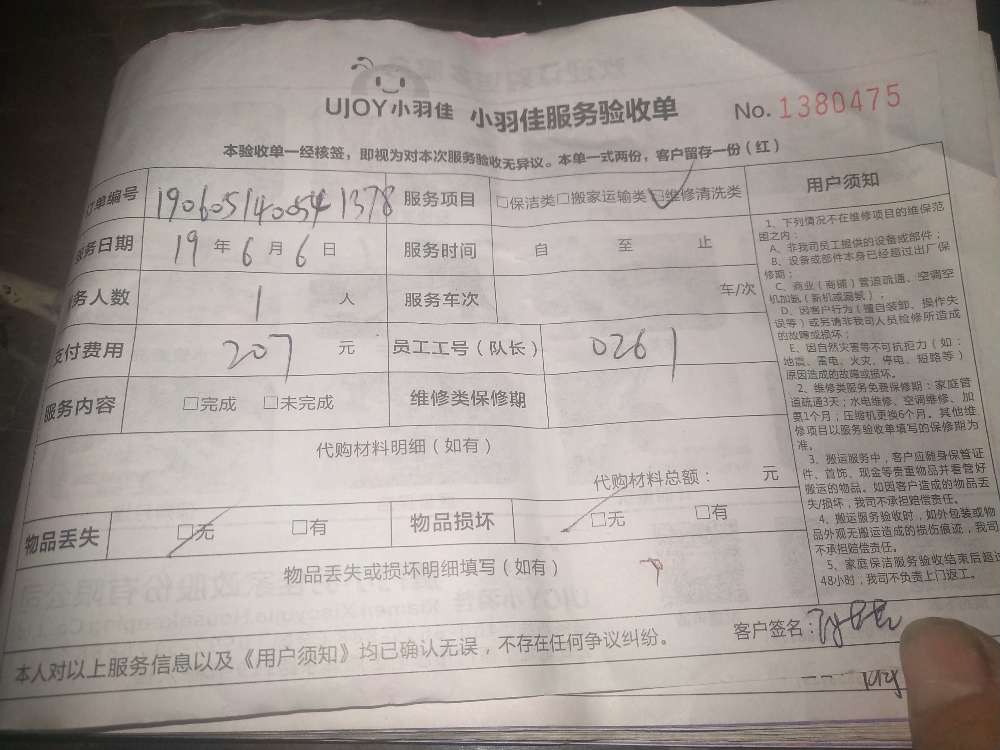 UJOY小羽佳 小羽佳服务验收单 No. 1380475
本验收单一经核签，即视为对本次服务验收无异议。本单一式两份，客户留存一份（红）
订单编号 190605140054 1378 服务项目 □保洁类□搬家运输类□维修清洗类
服务日期 19 年 6 月 6 日 服务时间 自 至 止
服务人数 1 人 服务车次 车/次
支付费用 207 元 员工工号（队长） 0261
服务内容 □完成 □未完成 维修类保修期
代购材料明细（如有）
代购材料总额： 元
物品丢失 □无 □有 物品损坏 □无 □有
物品丢失或损坏明细填写（如有）
本人对以上服务信息以及《用户须知》均已确认无误，不存在任何争议纠纷。 客户签名：
用户须知
1、下列情况不在维修项目的维保范
围之内：
A、非我司员工提供的设备或部件；
B、设备或部件本身已经超过出厂保
修期；
C、商业（商铺）管道疏通、空调空
机加氨（新机或漏氨）；
D、因客户行为（擅自装卸、操作失
误等）或另请非我司人员检修所造成
的故障或损坏；
E、因自然灾害等不可抗拒力（如：
地震、雷电、火灾、停电、短路等）
原因造成的故障或损坏。
2、维修类服务免费保修期：家庭管
道疏通3天；水电维修、空调维修、加
氨1个月；压缩机更换6个月。其他维
修项目以服务验收单填写的保修期为
准。
3、搬运服务中，客户应随身保管证
件、首饰、现金等贵重物品并看管好
搬运的物品。如因客户造成的物品丢
失/损坏，我司不承担赔偿责任。
4、搬运服务验收时，如外包装或物
品外观无搬运造成的损伤痕迹，我司
不承担赔偿责任。
5、家庭保洁服务验收结束后超过
48小时，我司不负责上门返工。